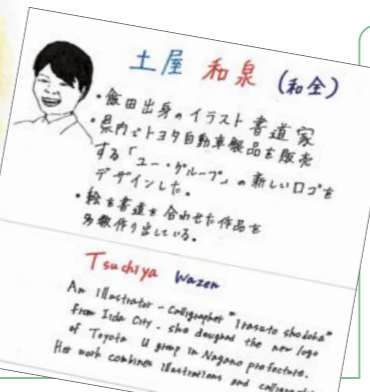 土屋 和泉 (和全)
・飯田出身のイラスト書道家
・県内でトヨタ自動車製品を販売
する「ユー・グループ」の新しいロゴを
デザインした。
・絵と書道を合わせた作品を
多数作り出している。
Tsuchiya Wazen
An Illustrator - Calligrapher "Irasuto shodoka"
from Iida City. she designed the new logo
of Toyota U group in Nagano prefecture.
Her work combines illustrations and